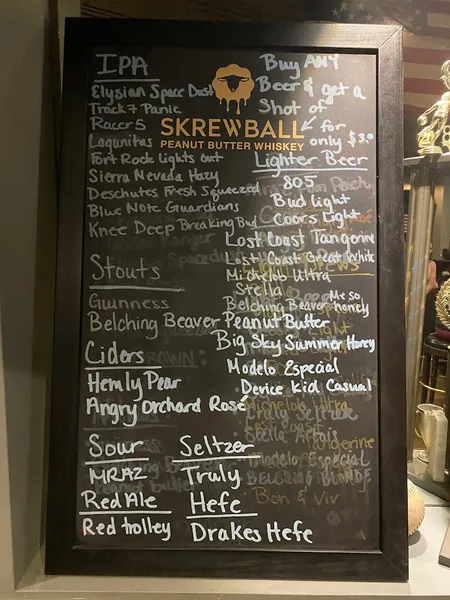 IPA
Elysian Space Dust
Track 7 Panic
Racer 5
Lagunitas
Fort Rock Lights Out
Sierra Nevada Hazy
Deschutes Fresh Squeezed
Blue Note Guardians
Knee Deep Breaking Bud
Stouts
Guinness
Belching Beaver Peanut Butter
Ciders
Hemly Pear
Angry Orchard Rosé
Sour
MRAZ
Red Ale
Red trolley
Seltzer
Truly
Hefe
Drakes Hefe
Buy ANY
Beer & get a
Shot of
SKREWBALL
PEANUT BUTTER WHISKEY
for
only $3.00
Lighter Beer
805
Bud light
Coors Light
Lost Coast Tangerine
Lost Coast Great White
Michelob Ultra
Stella
Belching Beaver Me so honey
Big Sky Summer Honey
Modelo Especial
Device Kid Casual
Michelob Ultra
Stella Artois
Modelo Especial
BELCHING BLONDE
Bon & Viv